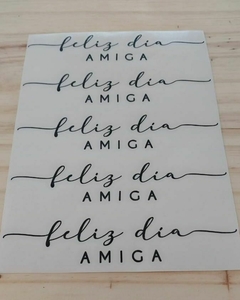 feliz dia
AMIGA
feliz dia
AMIGA
feliz dia
AMIGA
feliz dia
AMIGA
feliz dia
AMIGA